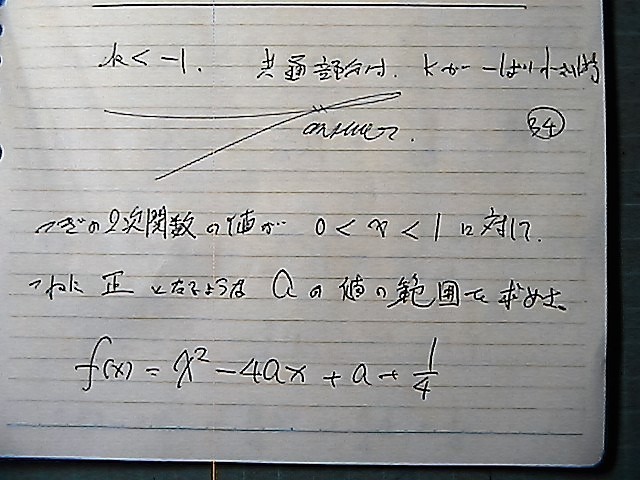 k < -1. 共通部分は. kが -1より小さい時
answer.
34
つぎの2次関数の値が 0 < x < 1 に対して.
つねに 正 となるような aの値の範囲を求めよ.
f(x) = x² - 4ax + a + 1/4